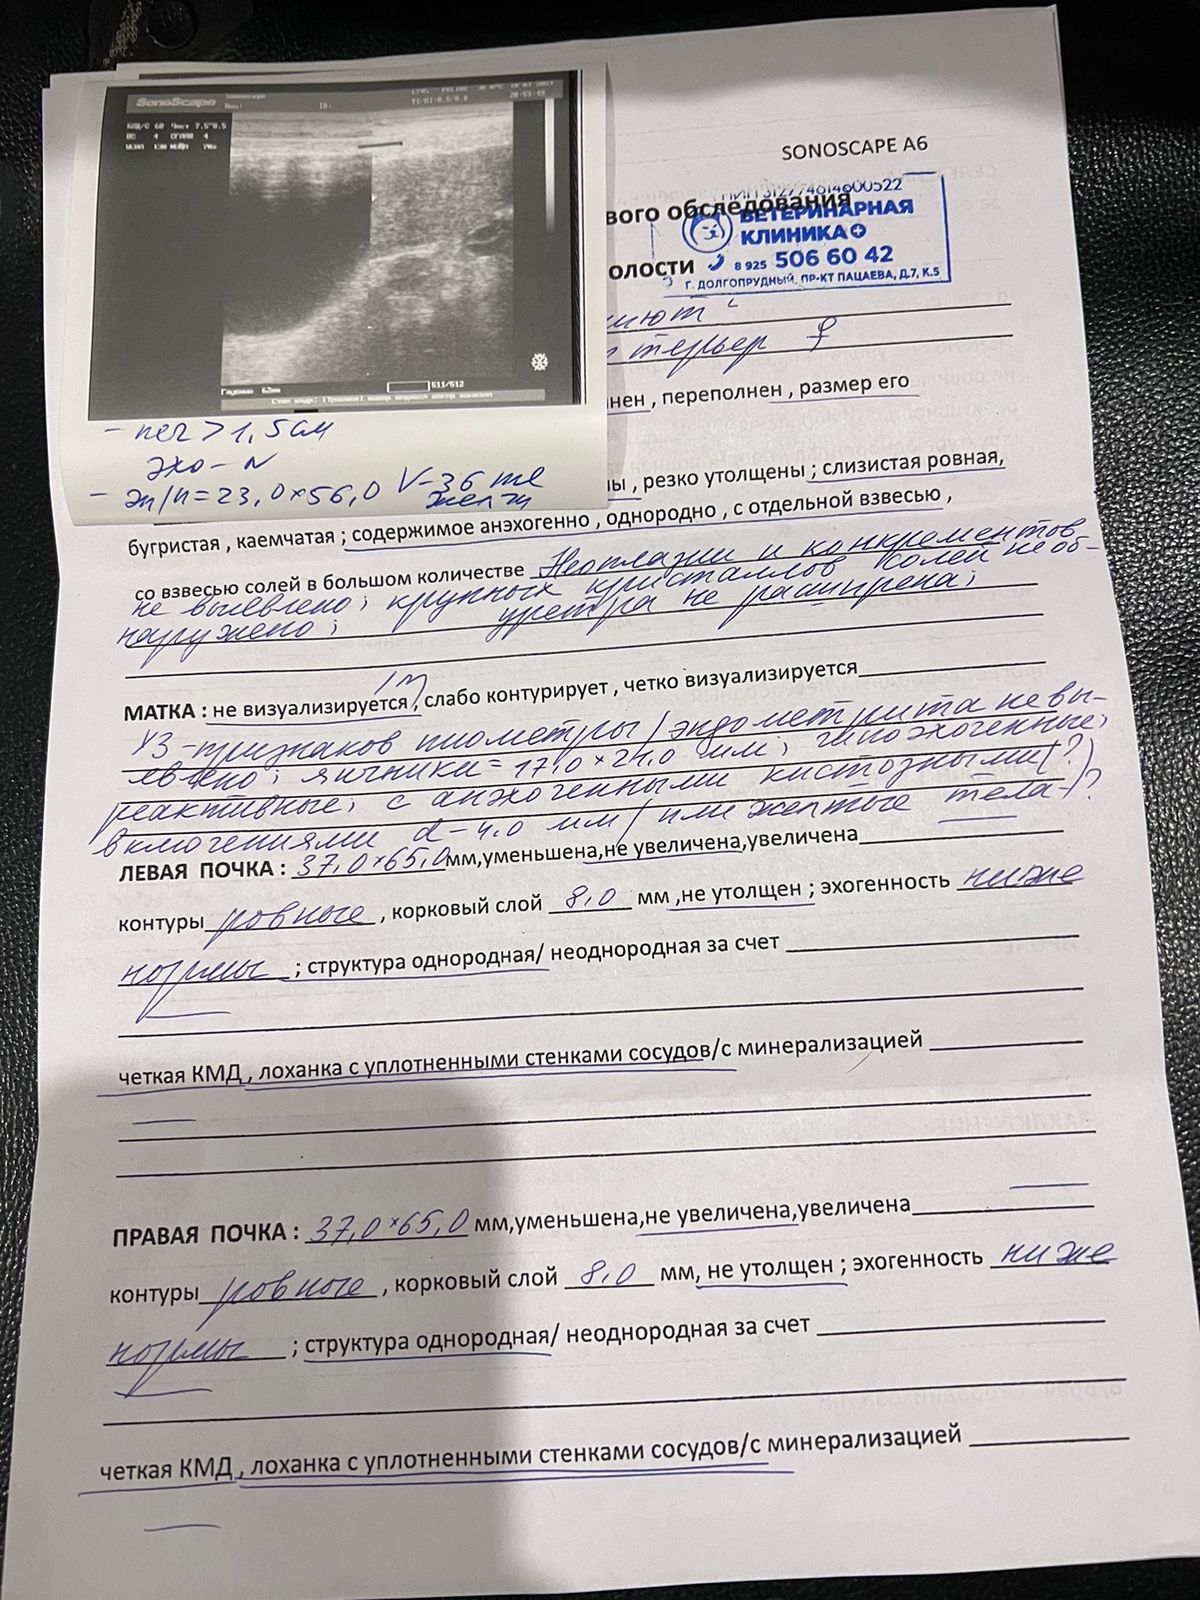 SonoScape
20:53:49
SONOSCAPE A6
вого обследования
ИНН 312774614600522
ВЕТЕРИНАРНАЯ
КЛИНИКА+
8 925 506 60 42
Г. ДОЛГОПРУДНЫЙ, ПР-КТ ПАЦАЕВА, Д.7, К.5
олости
терьер ♀
нен , переполнен , размер его
Глубина 62мм
511/512
- печ > 1,5 см
эхо - N
- ж/п = 23,0 × 56,0 V-36 мл желчи
ны , резко утолщены ; слизистая ровная,
бугристая , каемчатая ; содержимое анэхогенно , однородно , с отдельной взвесью ,
со взвесью солей в большом количестве Неоплазии и конкрементов
не выявлено; крупных кристаллов солей не об-
наружено; уретра не расширена;
МАТКА : не визуализируется , слабо контурирует , четко визуализируется
УЗ-признаков пиометры/эндометрита не вы-
явлено; яичники = 17,0 × 24,0 мм; гипоэхогенные,
реактивные, с анэхогенными кистозными (?)
включениями d - 4,0 мм / или желтые тела-)?
ЛЕВАЯ ПОЧКА : 37,0 × 65,0 мм,уменьшена,не увеличена,увеличена
контуры ровные , корковый слой 8,0 мм ,не утолщен ; эхогенность ниже
нормы ; структура однородная/ неоднородная за счет
четкая КМД , лоханка с уплотненными стенками сосудов/с минерализацией
ПРАВАЯ ПОЧКА : 37,0 × 65,0 мм,уменьшена,не увеличена,увеличена
контуры ровные , корковый слой 8,0 мм, не утолщен ; эхогенность ниже
нормы ; структура однородная/ неоднородная за счет
четкая КМД , лоханка с уплотненными стенками сосудов/с минерализацией